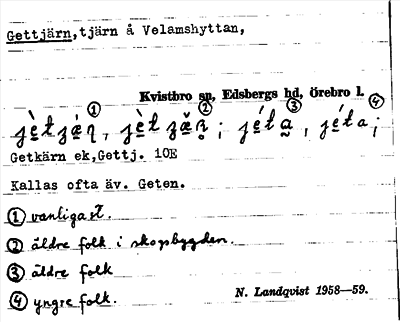 Gettjärn, tjärn å Velamshyttan,
Kvistbro sn, Edsbergs hd, Örebro l.
① ② ③ ④
Getkärn ek,Gettj. 10E
Kallas ofta äv. Geten.
① vanligast.
② äldre folk i skogsbygden.
③ äldre folk
④ yngre folk.
N. Landqvist 1958—59.